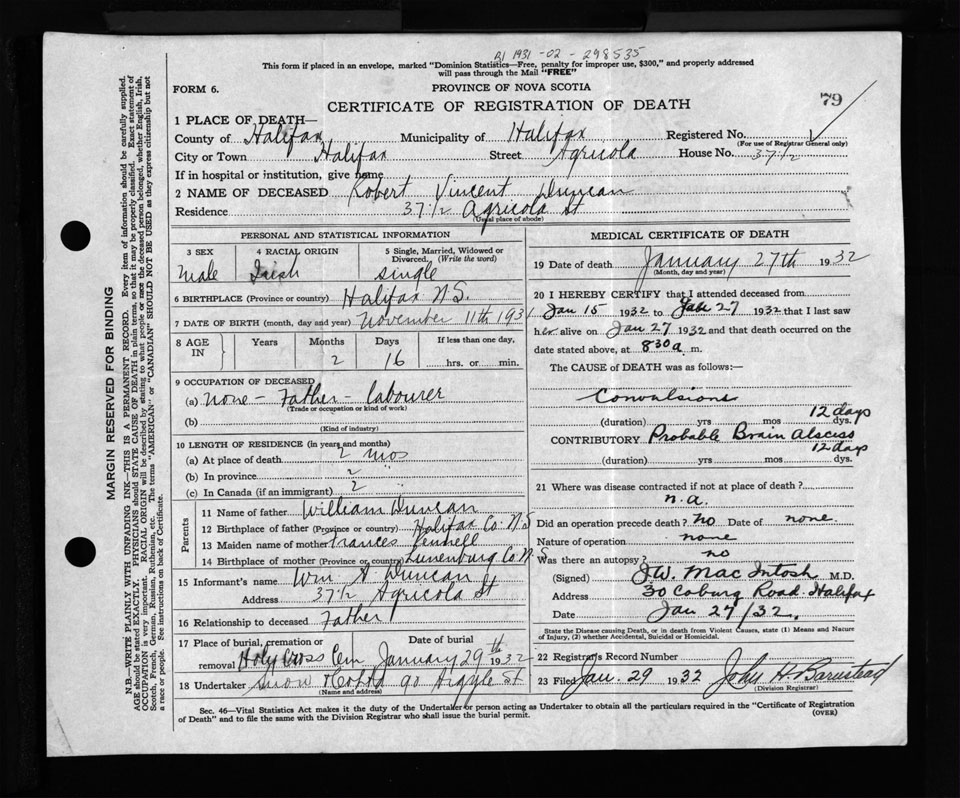 B1 1931-02-298535
This form if placed in an envelope, marked "Dominion Statistics—Free, penalty for improper use, $300," and properly addressed
will pass through the Mail "FREE"
FORM 6.
PROVINCE OF NOVA SCOTIA
79
CERTIFICATE OF REGISTRATION OF DEATH
1 PLACE OF DEATH—
County of Halifax Municipality of Halifax Registered No.
(For use of Registrar General only)
City or Town Halifax Street Agricola House No. 37½
If in hospital or institution, give name
2 NAME OF DECEASED Robert Vincent Duncan
Residence 37½ Agricola St
(Usual place of abode)
PERSONAL AND STATISTICAL INFORMATION
3 SEX 4 RACIAL ORIGIN 5 Single, Married, Widowed or
Divorced. (Write the word)
Male Irish single
6 BIRTHPLACE (Province or country) Halifax N.S.
7 DATE OF BIRTH (month, day and year) November 11th 1931
8 AGE IN Years Months Days If less than one day,
2 16 hrs. or min.
9 OCCUPATION OF DECEASED
(a) None - Father - labourer
(Trade or occupation or kind of work)
(b)
(Kind of industry)
10 LENGTH OF RESIDENCE (in years and months)
(a) At place of death 2 mos
(b) In province 2 "
(c) In Canada (if an immigrant) 2 "
Parents
11 Name of father William Duncan
12 Birthplace of father (Province or country) Halifax Co. N.S
13 Maiden name of mother Frances
14 Birthplace of mother (Province or country) Lunenburg Co N.S.
15 Informant's name Wm A Duncan
Address 37½ Agricola St
16 Relationship to deceased Father
17 Place of burial, cremation or Date of burial
removal Holy Cross Cem January 29th 1932
18 Undertaker Snow 90 Argyle St
(Name and address)
MEDICAL CERTIFICATE OF DEATH
19 Date of death January 27th 1932
(Month, day and year)
20 I HEREBY CERTIFY that I attended deceased from
Jan 15 1932 to Jan 27 1932 that I last saw
him alive on Jan 27 1932 and that death occurred on
date stated above, at 830 a. m.
The CAUSE of DEATH was as follows:—
Convulsions
(duration) yrs mos 12 days dys.
CONTRIBUTORY Probable Brain Abscess
(duration) yrs mos 12 days dys.
21 Where was disease contracted if not at place of death?
n.a.
Did an operation precede death? No Date of none.
Nature of operation none
Was there an autopsy? no
(Signed) J.W. MacIntosh M.D.
Address 30 Coburg Road. Halifax
Date Jan 27/32.
State the Disease causing Death, or in death from Violent Causes, state (1) Means and Nature
of Injury, (2) whether Accidental, Suicidal or Homicidal.
22 Registrar's Record Number
23 Filed Jan. 29 1932 John H. Barnstead
(Division Registrar)
Sec. 46—Vital Statistics Act makes it the duty of the Undertaker or person acting as Undertaker to obtain all the particulars required in the "Certificate of Registration
of Death" and to file the same with the Division Registrar who shall issue the burial permit.
(OVER)
MARGIN RESERVED FOR BINDING
N.B.—WRITE PLAINLY WITH UNFADING INK—THIS IS A PERMANENT RECORD. Every item of information should be carefully supplied.
AGE should be stated EXACTLY. PHYSICIANS should STATE CAUSE OF DEATH in plain terms, so that it may be properly classified. Exact statement of
OCCUPATION is very important. RACIAL ORIGIN will be described by stating to what people or race the deceased person belonged, whether English, Irish,
Scotch, French, German, Russian, Ruthenian, etc. The terms "AMERICAN" or "CANADIAN" SHOULD NOT BE USED as they express citizenship but not
a race or people. See instructions on back of Certificate.